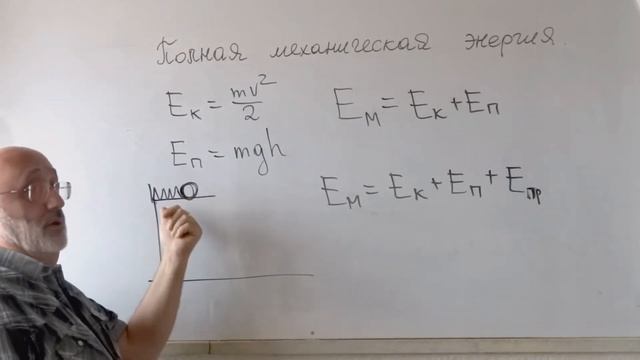 Полная механическая энергия.
Eк = mv²/2
Eм = Eк + Eп
Eп = mgh
Eм = Eк + Eп + Eпр